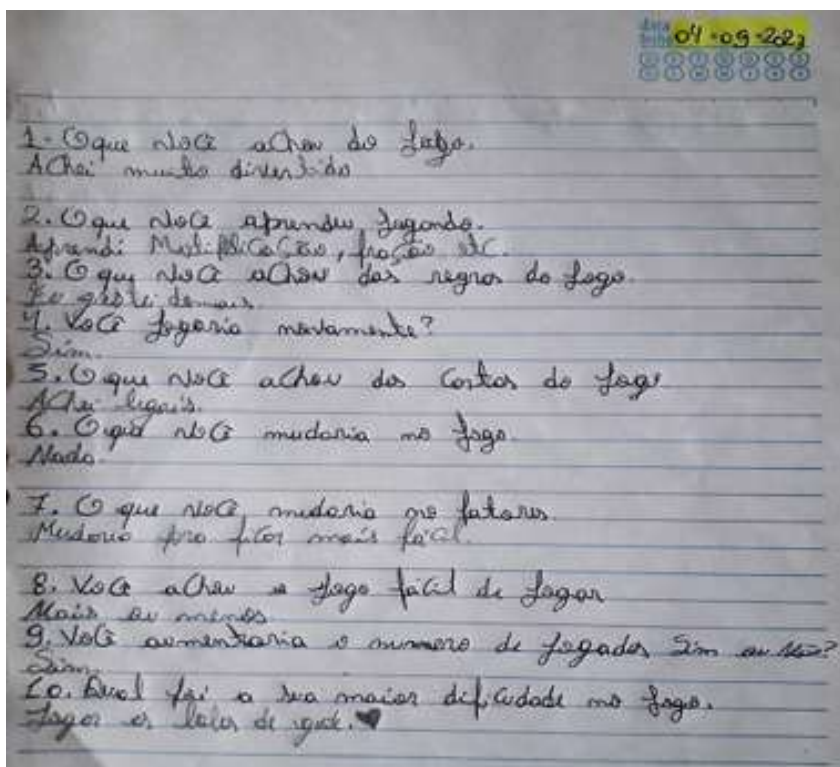 04-09-2023
1- O que você achou do jogo.
Achei muito divertido
2. O que você aprendeu jogando.
Aprendi Mutiplicação, fração etc.
3. O que você achou das regras do jogo.
Eu gostei demais.
4. Você jogaria novamente?
Sim.
5. O que você achou das cartas do jogo
Achei legais.
6. O que você mudaria no jogo.
Nada.
7. O que você mudaria no fatores.
Mudaria pra ficar mais fácil.
8. Você achou o jogo fácil de jogar
Mais ou menos
9. Você aumentaria o numero de jogados Sim ou Não?
Sim.
10. Qual foi a sua maior dificudade no jogo.
Jogar os de ♥